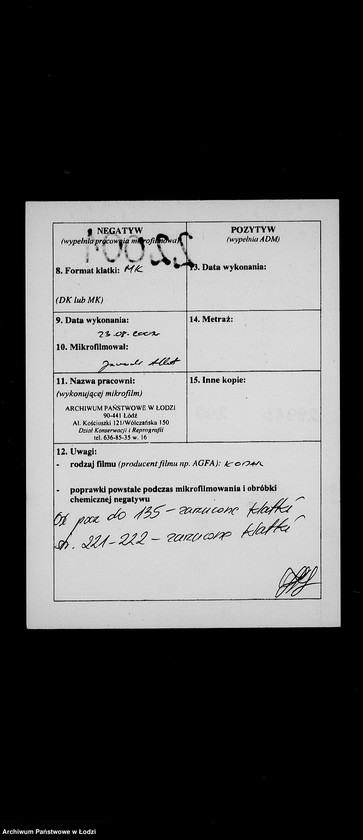 NEGATYW
(wypełnia pracownia mikrofilmowa)
8. Format klatki: MK
(DK lub MK)
9. Data wykonania:
23.08.2002
10. Mikrofilmował:
11. Nazwa pracowni:
(wykonującej mikrofilm)
ARCHIWUM PAŃSTWOWE W ŁODZI
90-441 Łódź
Al. Kościuszki 121/Wólczańska 150
Dział Konserwacji i Reprografii
tel. 636-85-35 w. 16
POZYTYW
(wypełnia ADM)
13. Data wykonania:
14. Metraż:
15. Inne kopie:
12. Uwagi:
- rodzaj filmu (producent filmu np. AGFA): KODAK
- poprawki powstałe podczas mikrofilmowania i obróbki
chemicznej negatywu
Od poz do 135 - zarzucone klatki
str. 221-222 - zarzucone klatki
Archiwum Państwowe w Łodzi